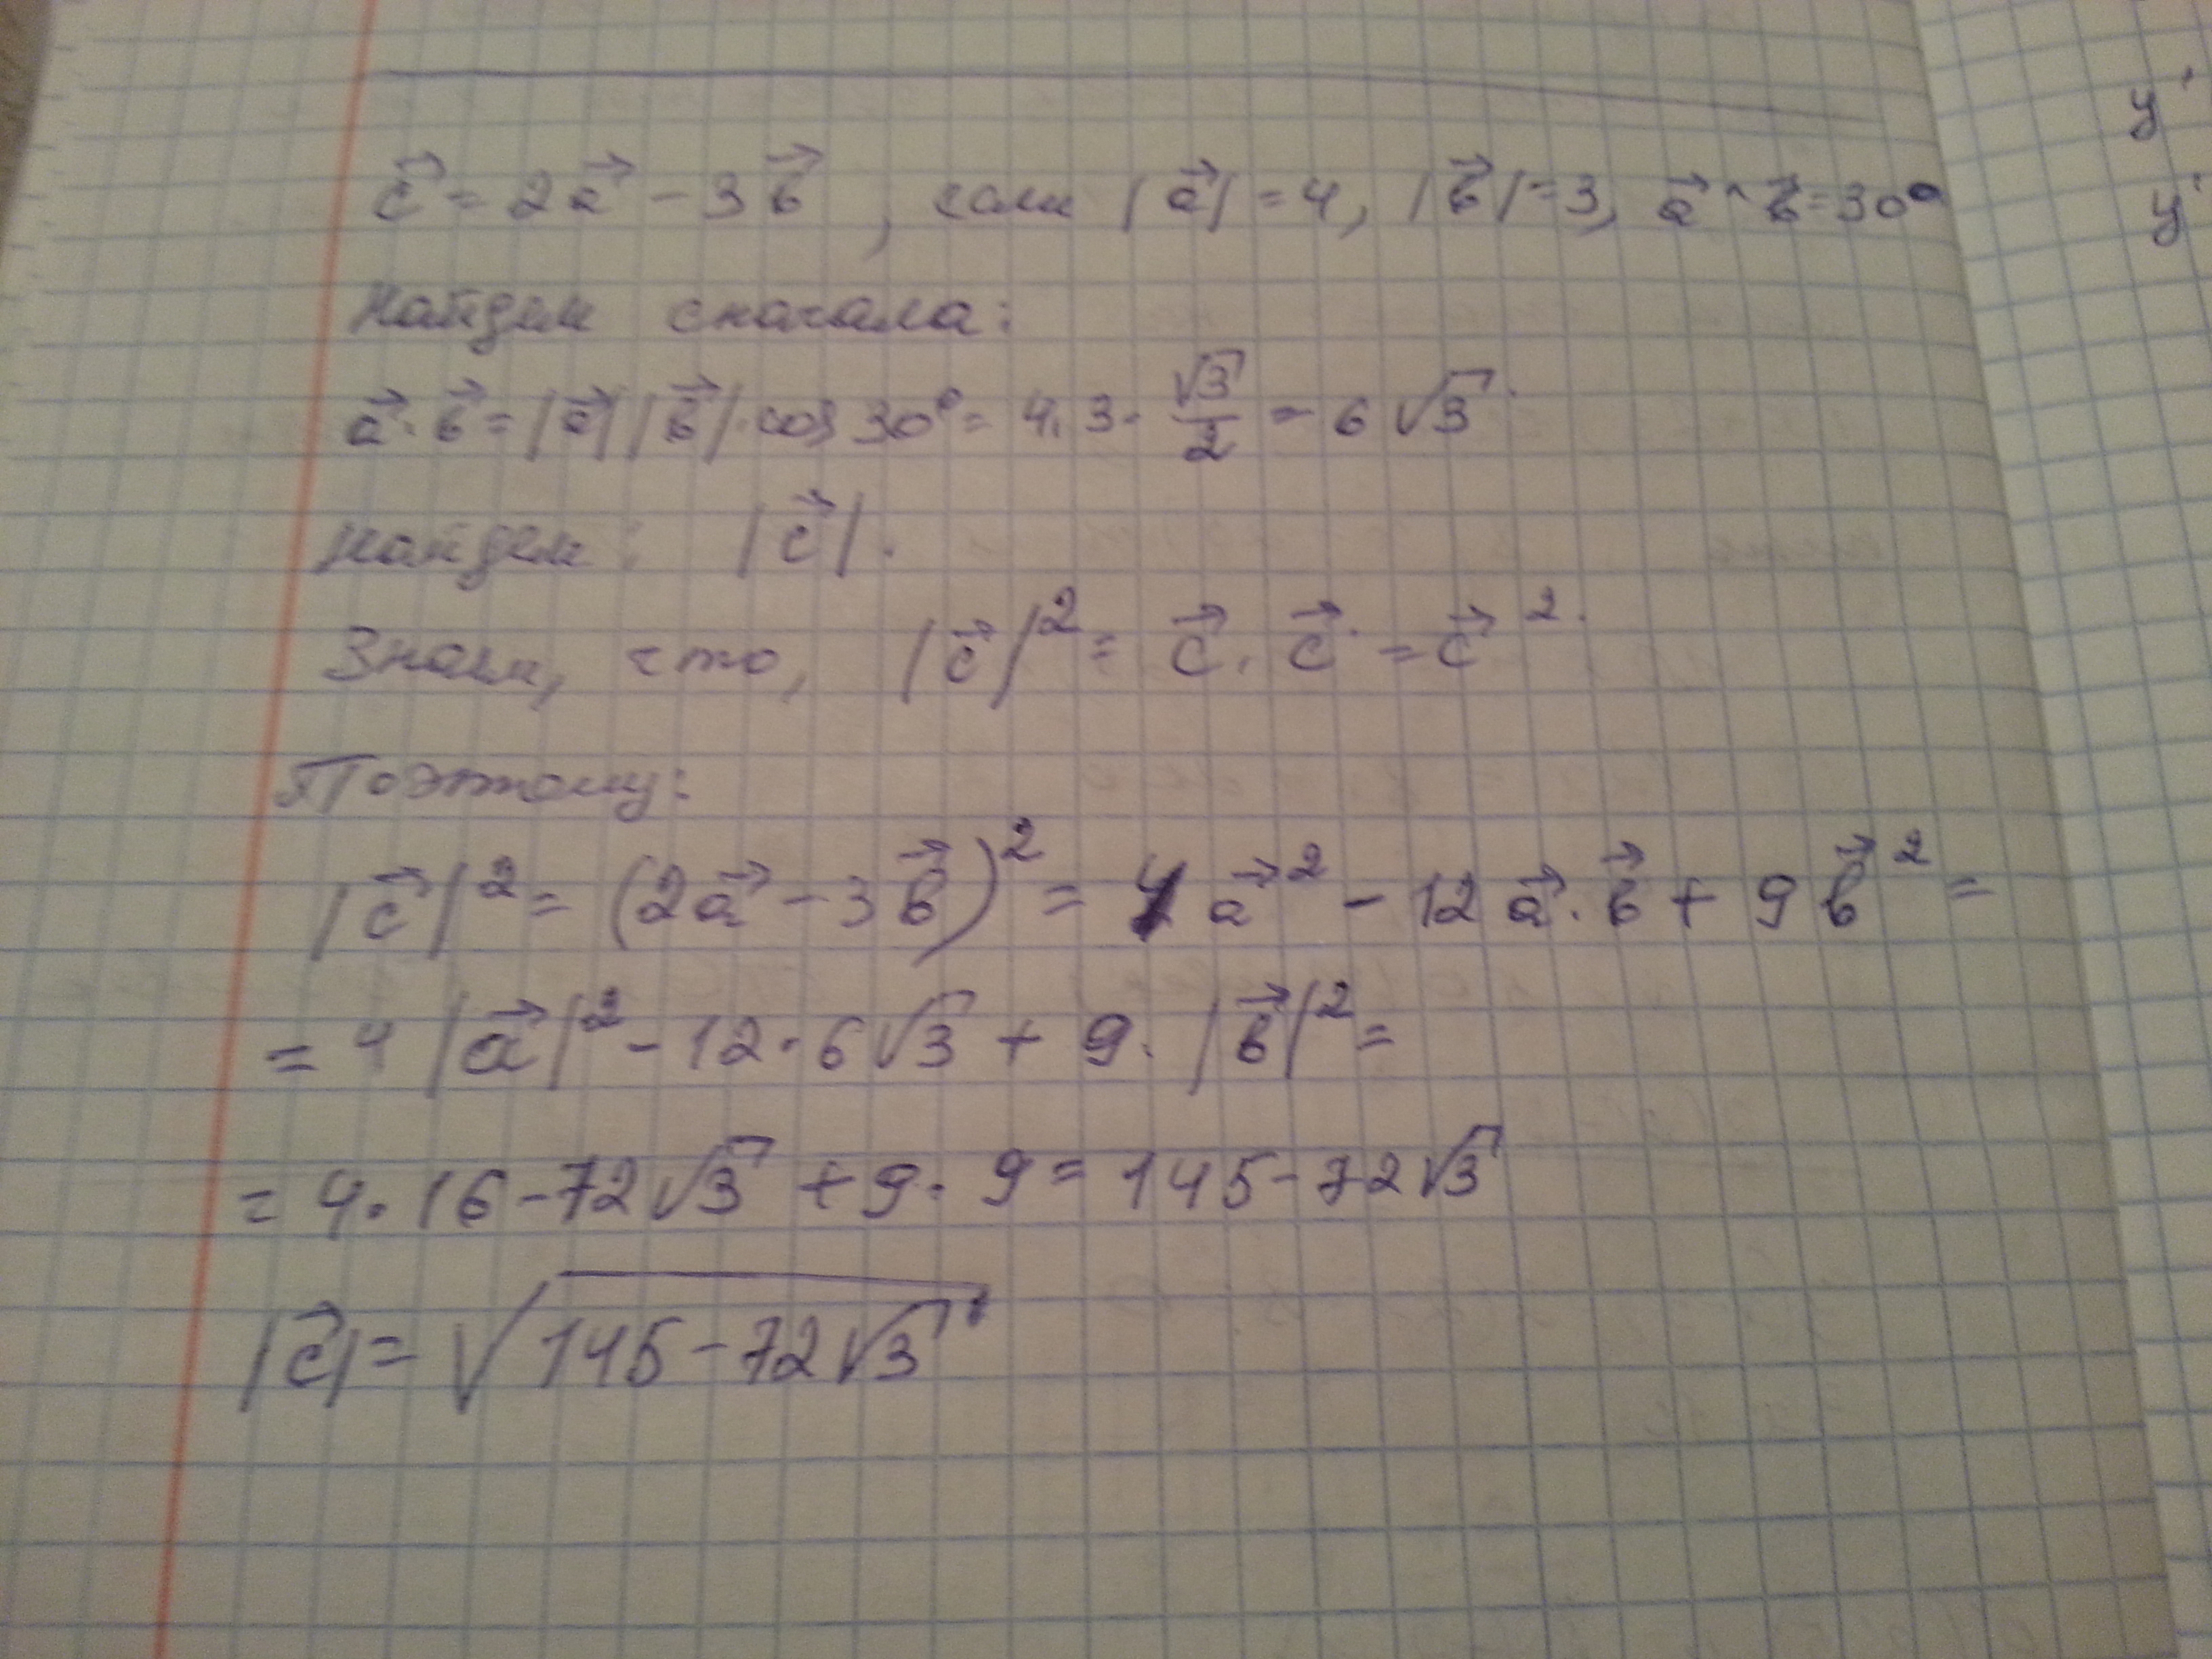 c⃗ = 2a⃗ - 3b⃗, если |a⃗| = 4, |b⃗| = 3, a⃗ ^ b⃗ = 30°
Найдем сначала:
a⃗ · b⃗ = |a⃗| |b⃗| · cos 30° = 4 · 3 · √3/2 = 6√3
Найдем: |c⃗|.
Знаем, что, |c⃗|² = c⃗ · c⃗ = c⃗².
Поэтому:
|c⃗|² = (2a⃗ - 3b⃗)² = 4a⃗² - 12a⃗ · b⃗ + 9b⃗² =
= 4|a⃗|² - 12 · 6√3 + 9 · |b⃗|² =
= 4 · 16 - 72√3 + 9 · 9 = 145 - 72√3
|c⃗| = √(145 - 72√3)
y'
y'